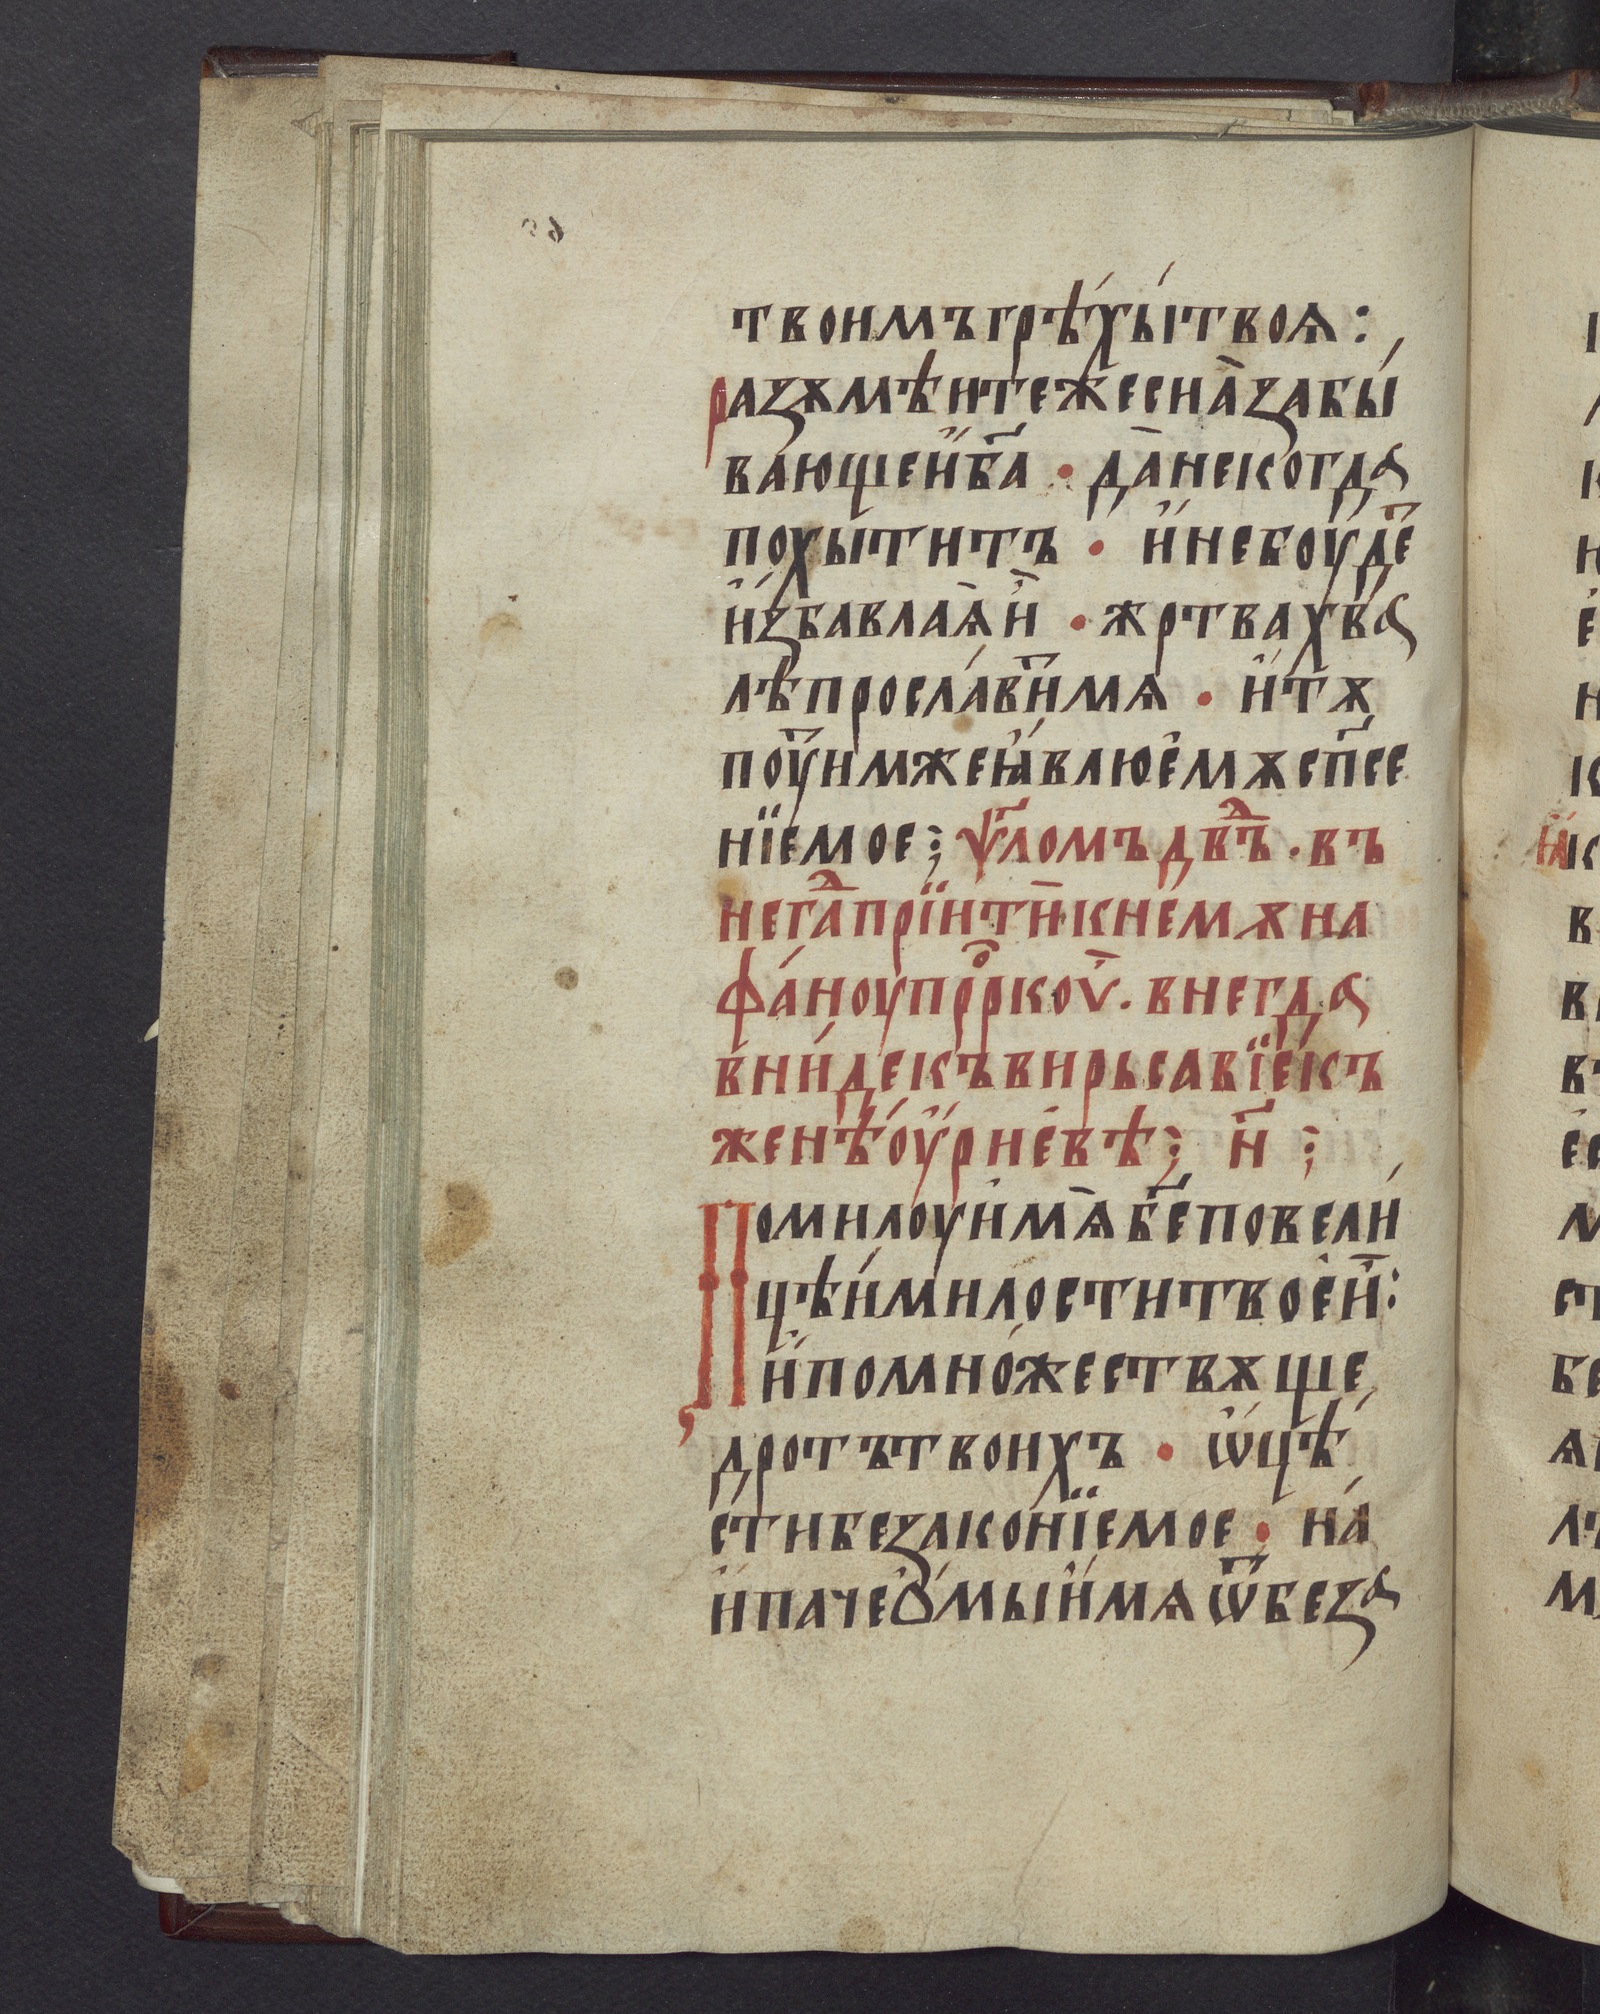 твоимъгрѣ́хы́твоѧ:
разꙋмѣ́итежесна̀забы́
ва́ющеи҆б҃а · да̀некогда
похы́титъ · и҆небоу́де҇
и҆збавлаѧ̀и҆ · жрътвахва
лѣ́просла́ви҇мѧ · и҆тꙋ
поу҇имжеꙗ҆влюе҆мꙋсп҃се
нїемое; ѱ҃ломъдв҃дъ · въ
негд҇апрїитѝкнемꙋна
фа́ноупрⷪ҇ркоу̀ · внегда
вни́декъвирьсавїе́къ
женѣ́оу҆рневѣ; н҃ ;
Помилоуи҆мѧ̀б҃еповели́
цѣи҆милоститвое҆и҆:
и҆помно́жествꙋще
дротътвоихъ · ѡ҆цѣ́
стибезако́нїемое · на́
и҆пачеѻ҆мыи҆мѧѿбеза